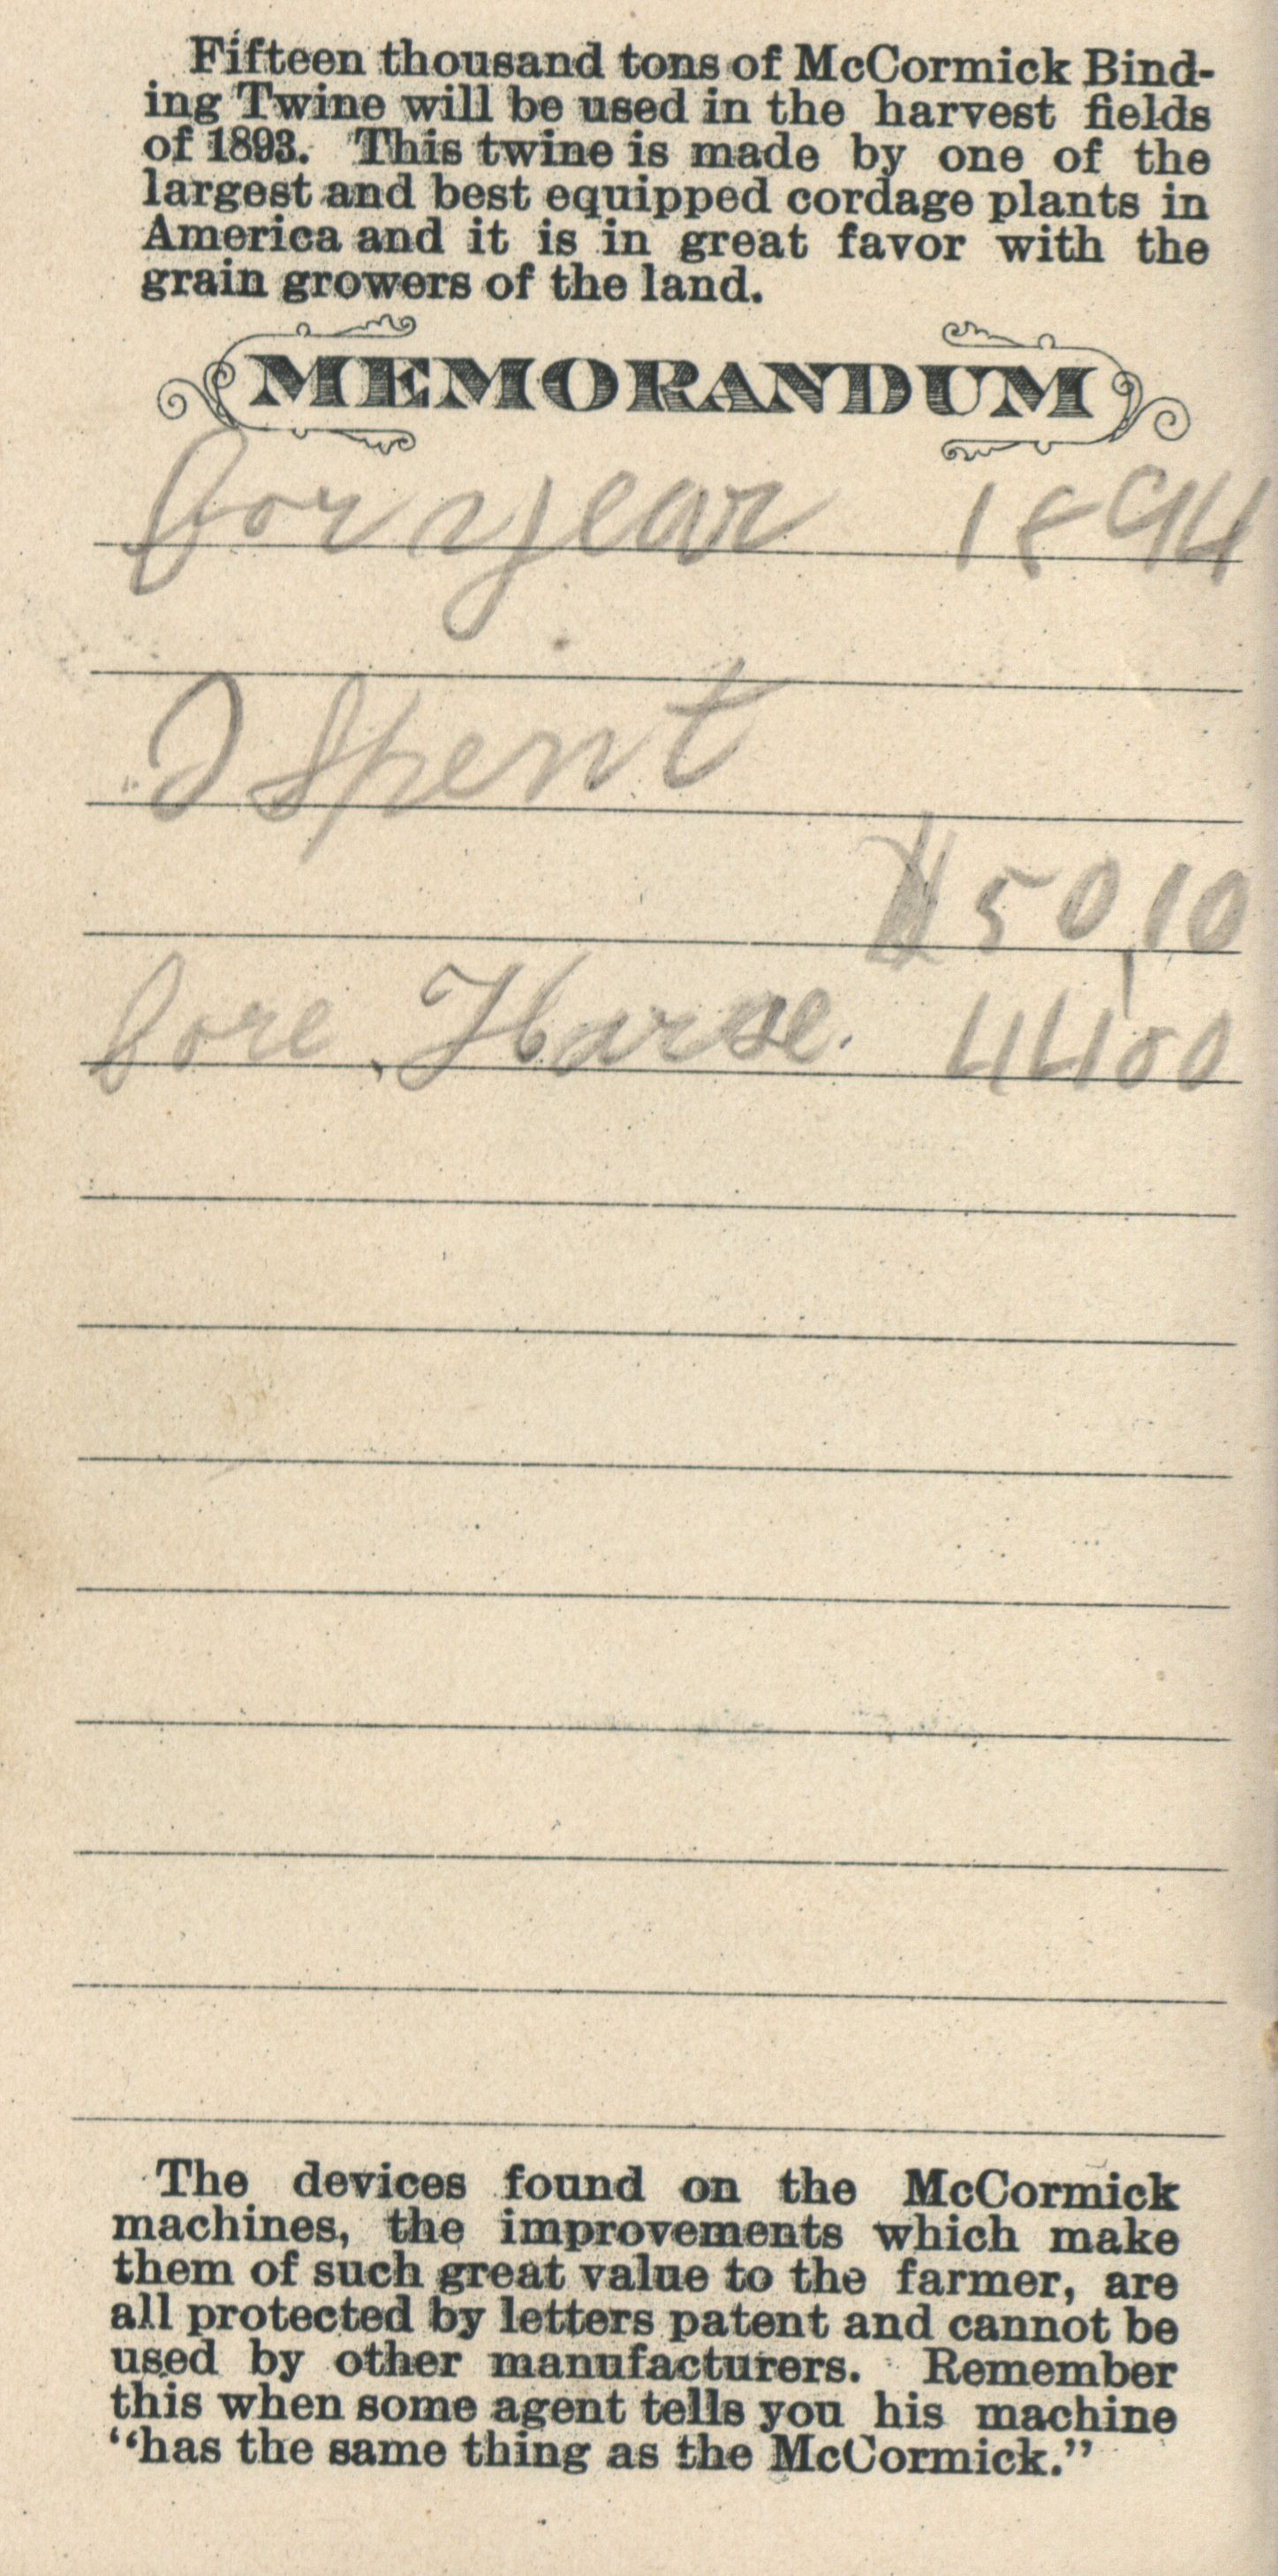 Fifteen thousand tons of McCormick Bind-
ing Twine will be used in the harvest fields
of 1893. This twine is made by one of the
largest and best equipped cordage plants in
America and it is in great favor with the
grain growers of the land.
MEMORANDUM
for year 1894
I Spent
$50,10
fore Harse. 44,00
The devices found on the McCormick
machines, the improvements which make
them of such great value to the farmer, are
all protected by letters patent and cannot be
used by other manufacturers. Remember
this when some agent tells you his machine
“has the same thing as the McCormick.”